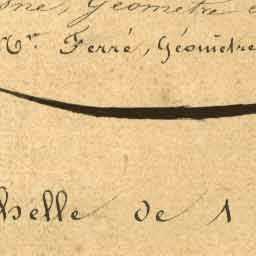 sne, Géomètre e
Mr. Ferré, Géomètre
chelle de 1